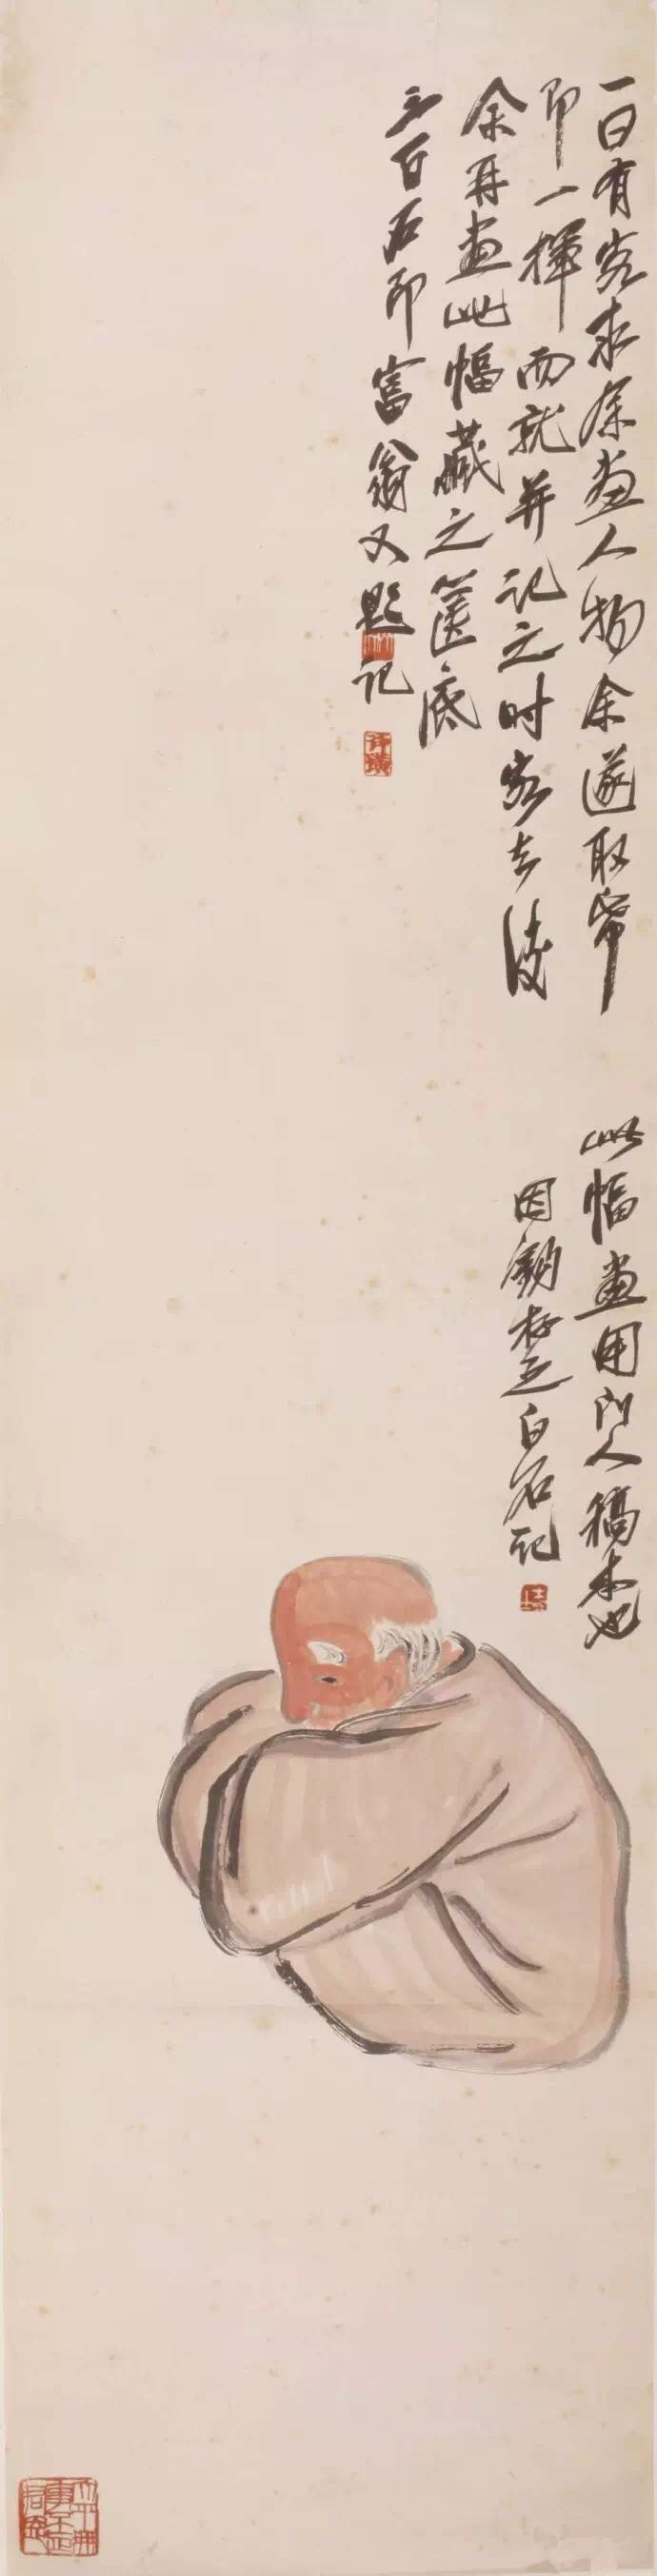 一日有客求余画人物余遂取帋
即一挥而就并记之时客去后
余再画此幅藏之箧底
三百石印富翁又题记
此幅画用门人稿本也
因钩存之白石记